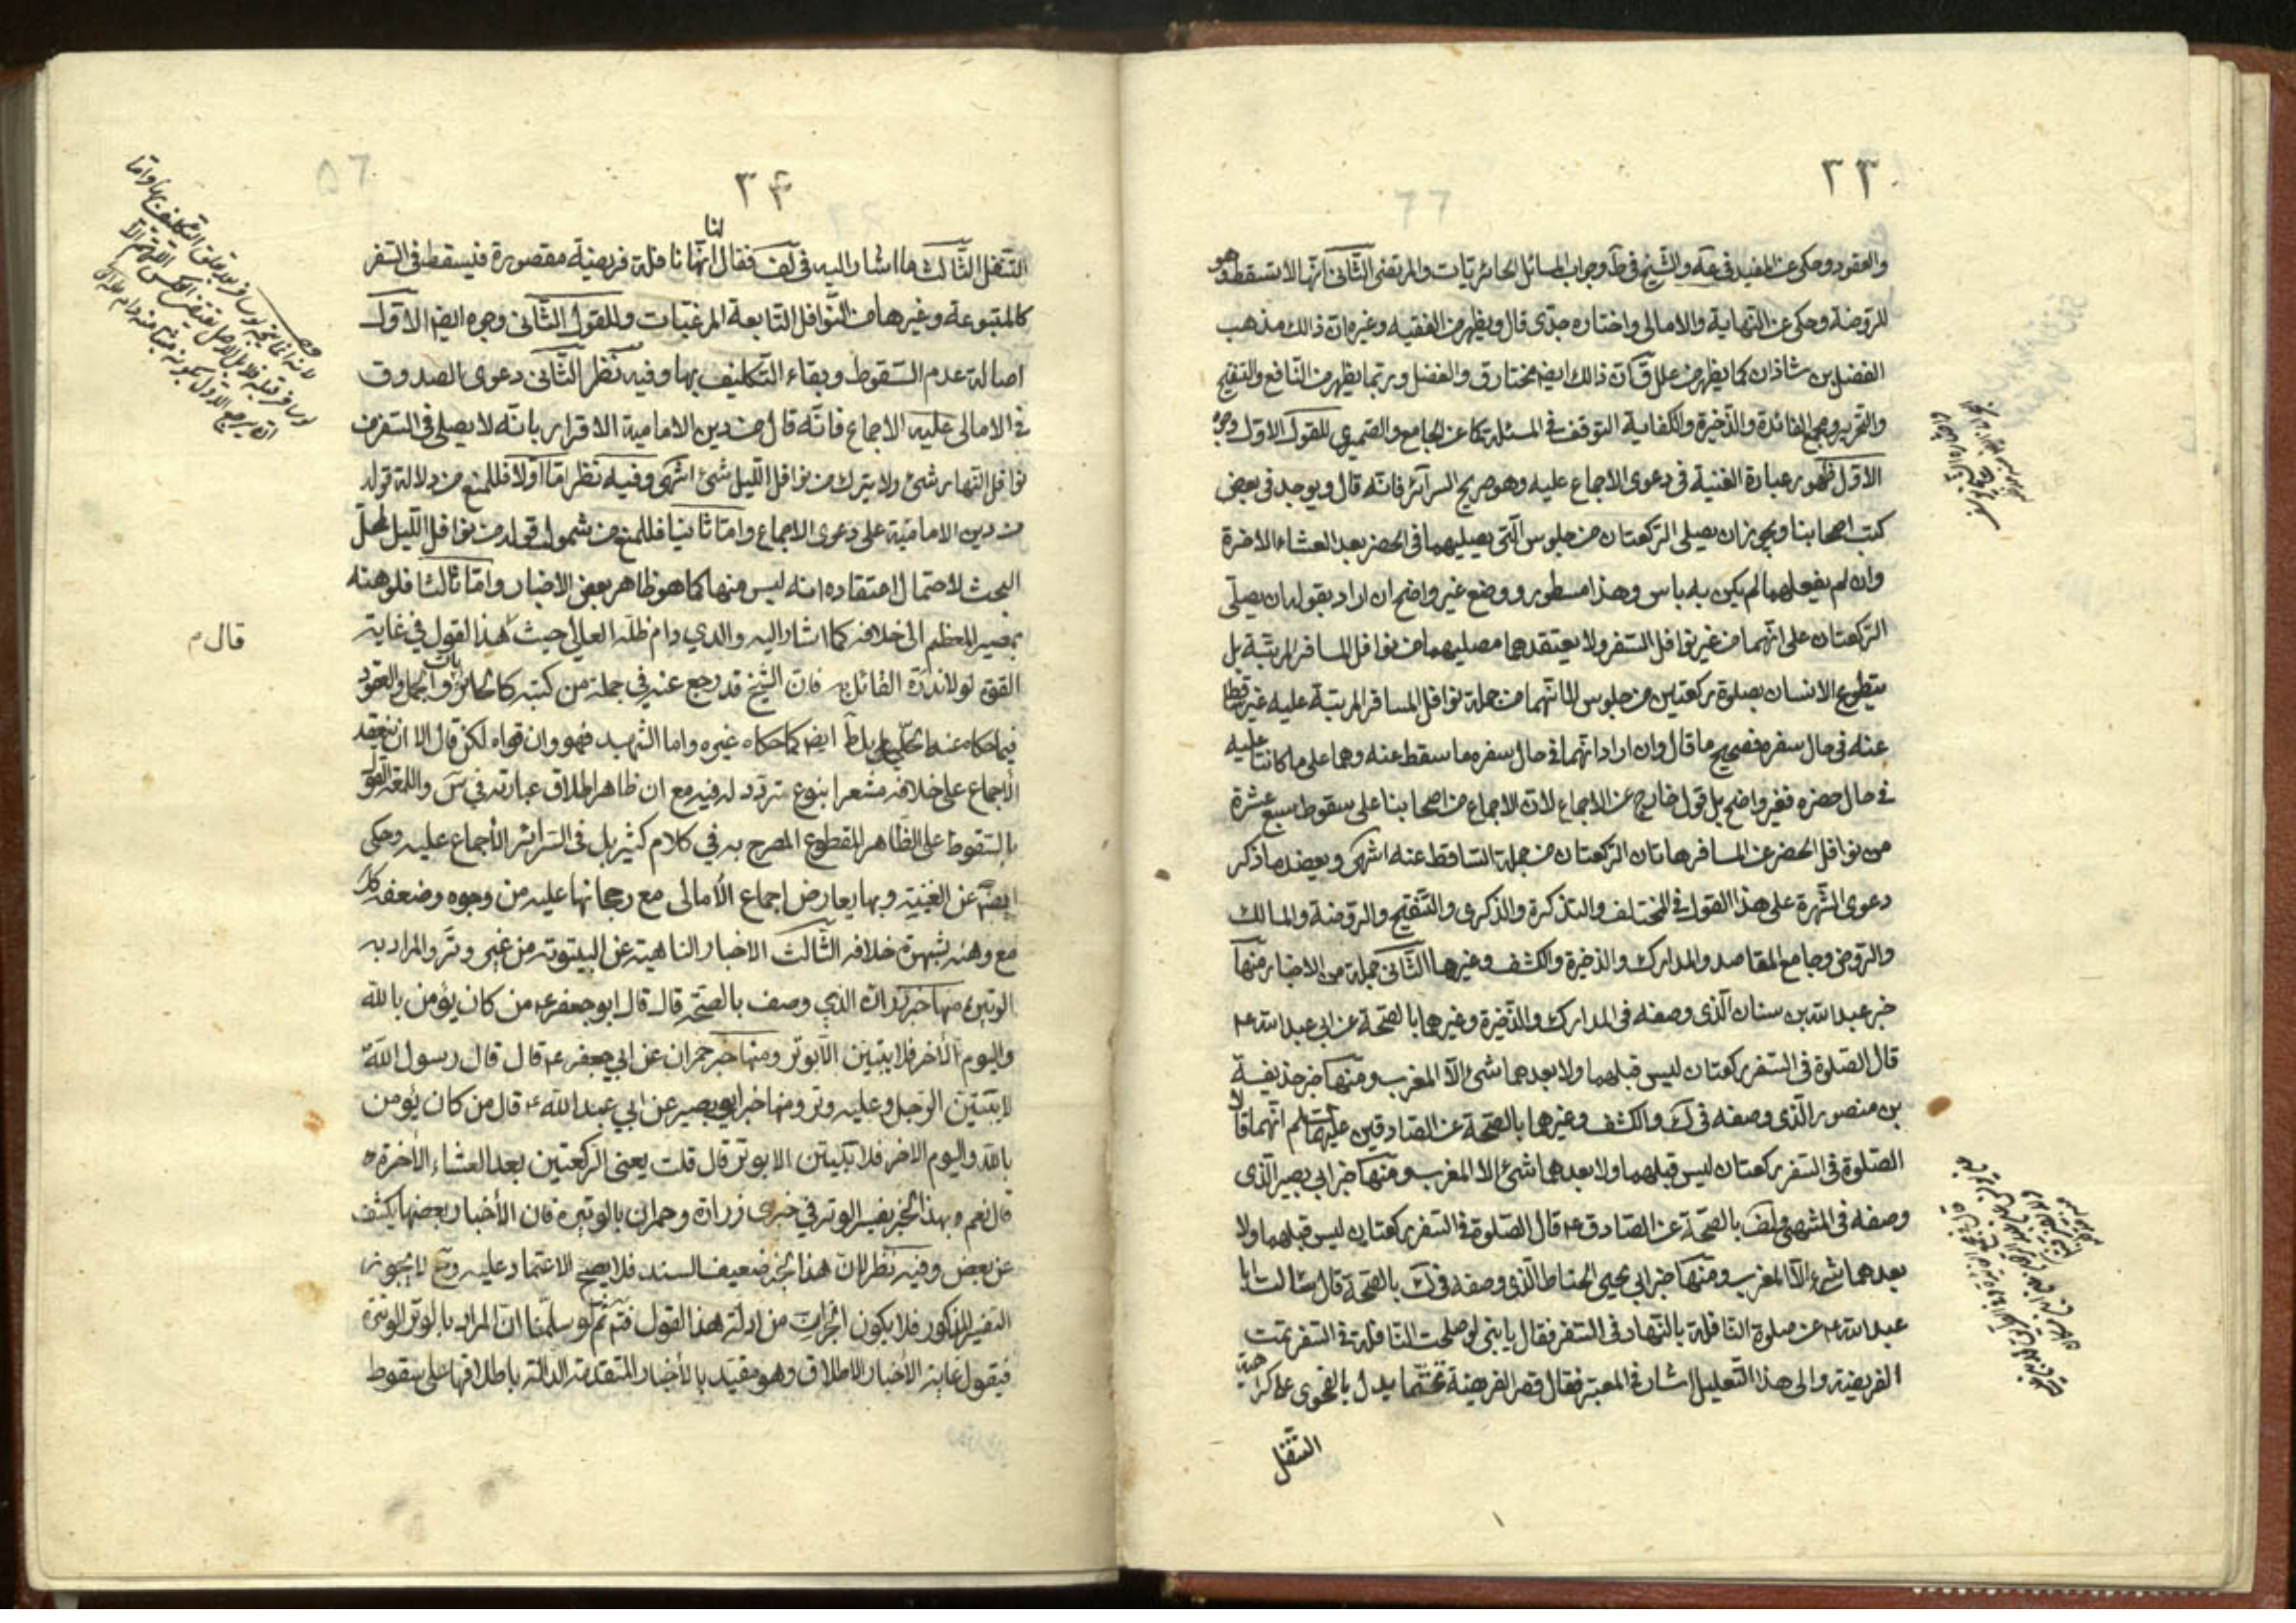 ٣٣
والعقود وحكى عن المفيد فى عة والشيخ فى ط وجواب المسائل الحائريات والمرتضى الثانى انها لا تسقط وهو
للروضة وحكى عن النهاية والامالى واختاره جدى قال ويظهر من الفقيه وغيره ان ذلك مذهب
الفضل بن شاذان كما يظهر من علل ق كان ذلك ايضا مختار ق والفضل وربما يظهر من النافع والتنقيح
والتحرير ومجمع الفائدة والذخيرة والكفاية التوقف فى المسئلة كما عن الجامع والصيمرى للقول الاول وجوه
الاول ظهور عبارة الغنية فى دعوى الاجماع عليه وهو صريح السرائر فانه قال ويوجد فى بعض
كتب اصحابنا ويجوز ان يصلى الركعتان من جلوس التى يصليهما فى الحضر بعد العشاء الاخرة
وان لم يفعلهما لم يكن به باس وهذا مسطور ووضع غير واضح ان اراد بقوله ان يصلى
الركعتان على انهما من غير نوافل السفر ولا يعتقدهما مصليهما من نوافل المسافر المرتبة بل
يتطوع الانسان بصلوة ركعتين من جلوس لا انهما من جملة نوافل المسافر المرتبة عليه غير
عنه فى حال سفره فصحيح ما قال وان اراد انهما فى حال سفره ما سقط عنه وهما على ما كانتا عليه
فى حال حضره فغير واضح بل قول خارج عن الاجماع لان الاجماع من اصحابنا على سقوط سبع عشرة
من نوافل الحضر عن المسافر هاتان الركعتان من جملة الساقط عنه انتهى ويعضد ما ذكر
دعوى الشهرة على هذا القول فى المختلف والتذكرة والذكرى والتنقيح والروضة والمسالك
والروض وجامع المقاصد والمدارك والذخيرة والكشف وغيرها الثانى جملة من الاخبار منها
خبر عبد الله بن سنان الذى وصفه فى المدارك والذخيرة وغيرهما بالصحة عن ابى عبد الله ع
قال الصلوة فى السفر ركعتان ليس قبلهما ولا بعدهما شئ الا المغرب ومنها خبر حذيفة
بن منصور الذى وصفه فى ك والكشف وغيرهما بالصحة عن الصادقين عليهما السلم انهما قالا
الصلوة فى السفر ركعتان ليس قبلهما ولا بعدهما شئ الا المغرب ومنها خبر ابى بصير الذى
وصفه فى المنتهى ولف بالصحة عن الصادق ع قال الصلوة فى السفر ركعتان ليس قبلهما ولا
بعدهما شئ الا المغرب ومنها خبر ابى يحيى الحناط الذى وصفه فى ك بالصحة قال سئالت ابا
عبد الله ع عن صلوة النافلة بالنهار فى السفر فقال يا بنى لو صلحت النافلة فى السفر تمت
الفريضة والى هذا التعليل اشار فى المعتبر فقال قصر الفريضة تحتما يدل بالفحوى على كراهية
التنفل
٣۴
التنفل الثالث ما اشار اليه فى لف فقال لنا انها نافلة فريضة مقصورة فيسقط فى السفر
كالمتبوعة وغيرها من النوافل التابعة المرغبات وللقول الثانى وجوه ايضا الاول
اصالة عدم السقوط وبقاء التكليف بها وفيه نظر الثانى دعوى الصدوق
فى الامالى عليه الاجماع فانه قال من دين الامامية الاقرار بانه لا يصلى فى السفر من
نوافل النهار شئ ولا يترك من نوافل الليل شئ انتهى وفيه نظر اما اولا فللمنع من دلالة قوله
من دين الامامية على دعوى الاجماع واما ثانيا فللمنع من شمول قوله من نوافل الليل لمحل
البحث لاحتمال اعتقاده انه ليس منها كما هو ظاهر بعض الاخبار واما ثالثا فلوهنه
بمصير المعظم الى خلافه كما اشار اليه والدي دام ظله العالي حيث هذا القول في غاية
قال م
القوة لولا ندرة القائل به فان الشيخ قد رجع عنه في جملة من كتبه كالحائريات والجمل والعقود
فيما حكاه عنه الحلي بل ط ايضا كما حكاه غيره واما الشهيد فهو وان قواه لكن قال الا ان ينعقد
الأجماع على خلافه مشعرا بنوع تردد له فيه مع ان ظاهر اطلاق عبارته في س واللمعة القول
بالسقوط على الظاهر المقطوع المصرح به في كلام كثير بل فى السرائر الأجماع عليه وحكى
ايضا عن الغنية وبها يعارض اجماع الأمالى مع رجحانها عليه من وجوه وضعفه
مع وهنه بشهرة خلافه الثالث الاخبار الناهية عن البيتوتة من غير وتر والمراد به
الوتيرة منها خبر زرارة الذي وصف بالصحة قال قال ابو جعفر ع من كان يؤمن بالله
واليوم الأخر فلا يبيتن الا بوتر ومنها خبر حمران عن ابي جعفر ع قال قال رسول الله
لا يبيتن الرجل وعليه وتر ومنها خبر ابي بصير عن ابي عبد الله ع قال من كان يؤمن
بالله واليوم الاخر فلا تبيتن الا بوتر قال قلت يعنى الركعتين بعد العشاء الأخرة
قال نعم وبهذا الخبر يفسر الوتر في خبرى زرارة وحمران بالوتيرة فان الأخبار بعضها يكشف
عن بعض وفيه نظر لان هذا الخبر ضعيف السند فلا يصح الاعتماد عليه وح لا يجوز
التفسير المذكور فلا يكون الخبران من ادلة هذا القول فتم ثم لو سلمنا ان المراد بالوتر الوتيرة
فيقول غاية الأخبار الاطلاق وهو مقيد بالأخبار المتقدمة الدالة باطلاقها على سقوط